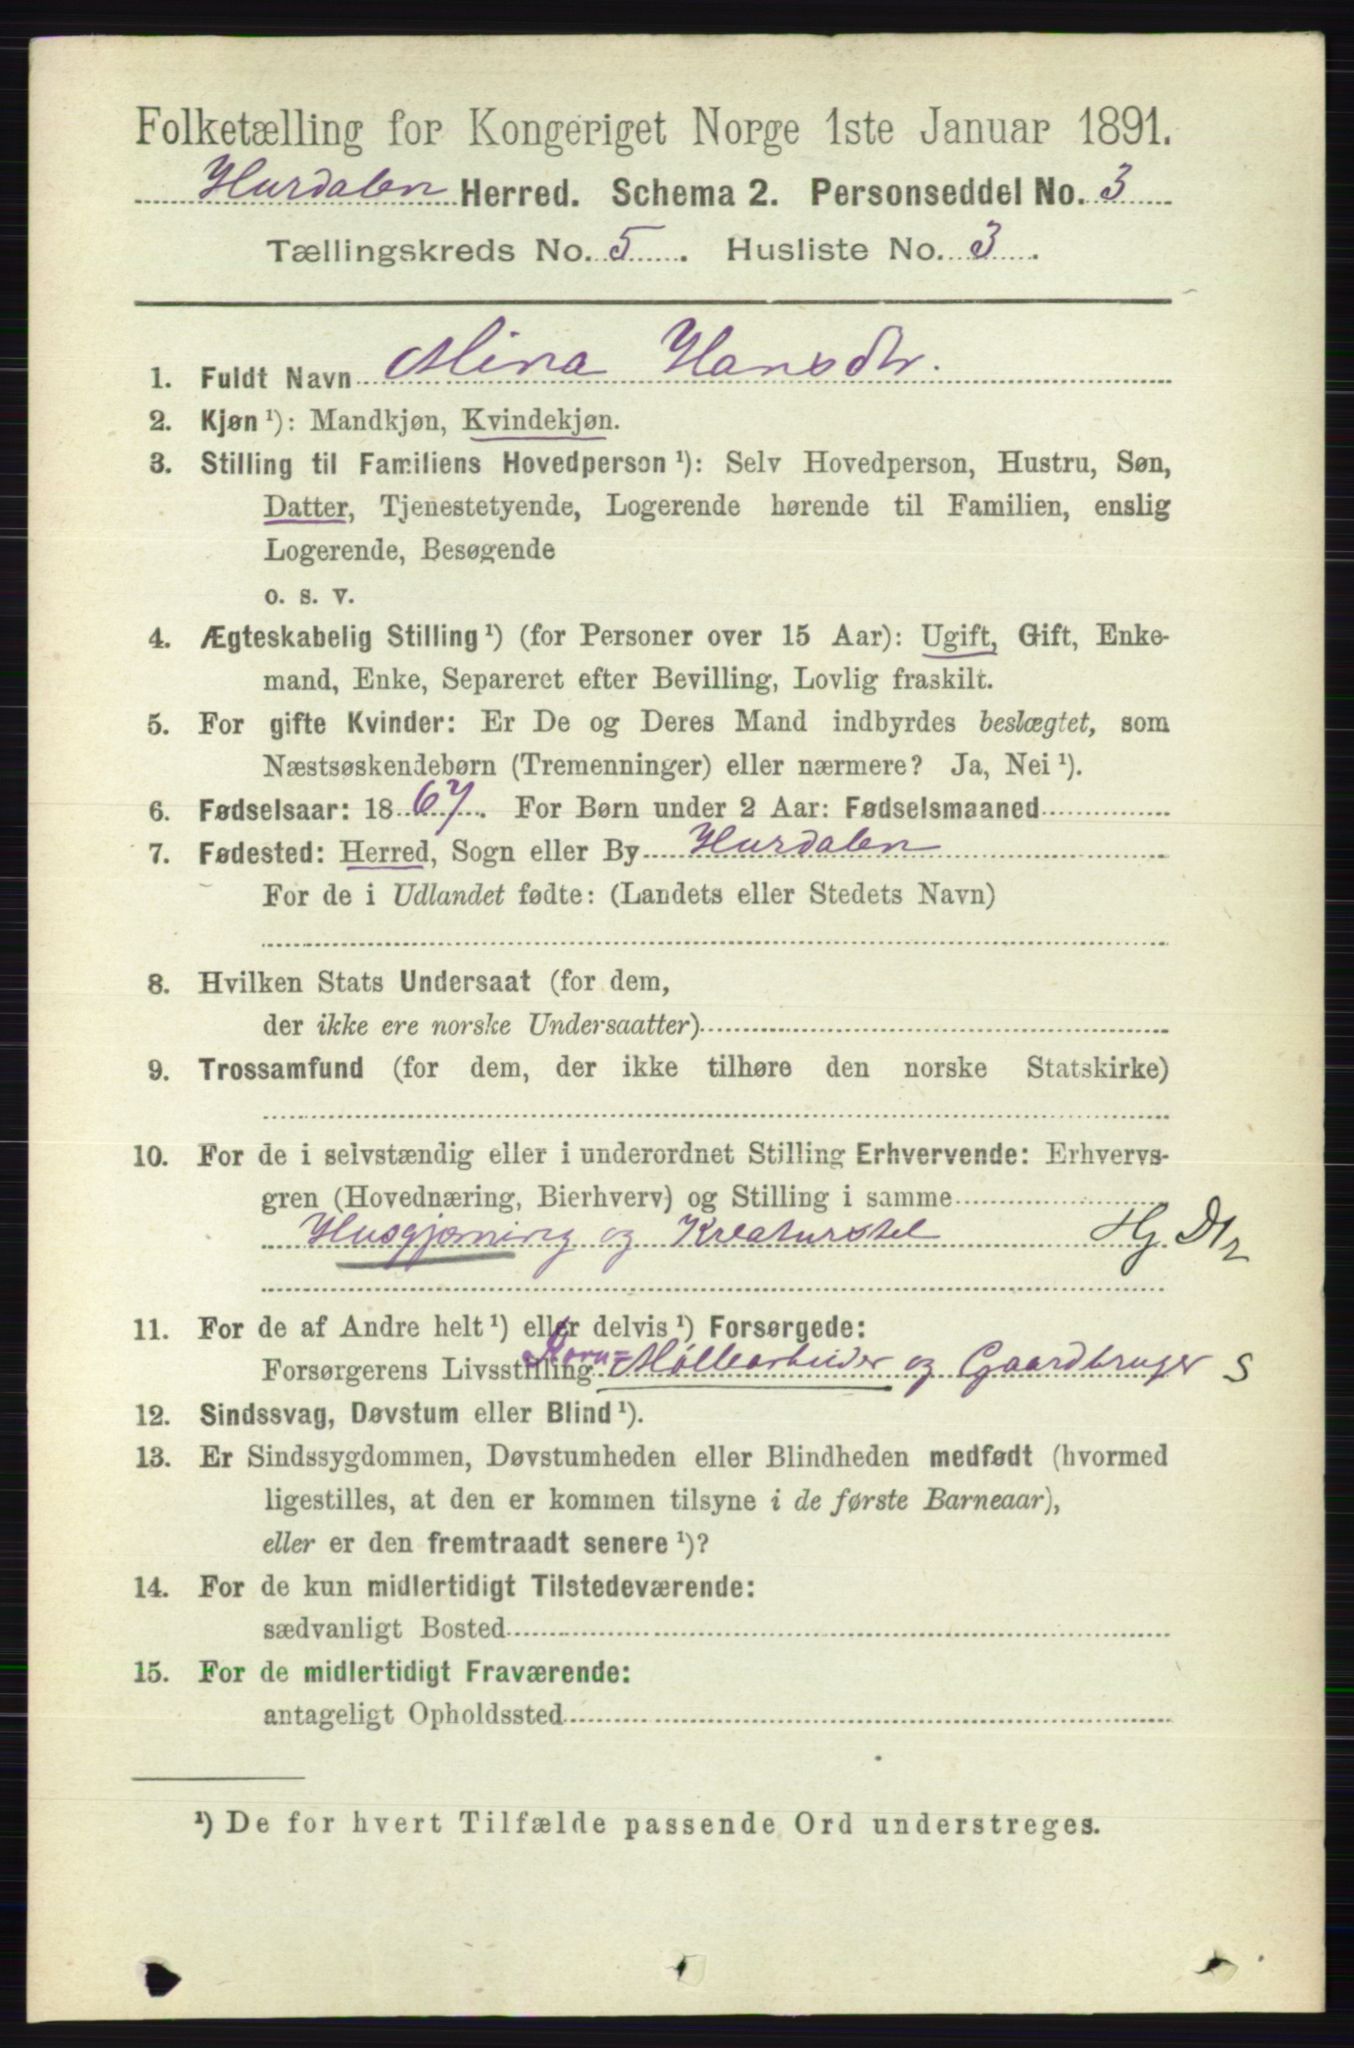 Folketælling for Kongeriget Norge 1ste Januar 1891.
Hurdalen Herred. Schema 2. Personseddel No. 3
Tællingskreds No. 5. Husliste No. 3.
1. Fuldt Navn Mina Hansdtr.
2. Kjøn ¹): Mandkjøn, Kvindekjøn.
3. Stilling til Familiens Hovedperson ¹): Selv Hovedperson, Hustru, Søn,
Datter, Tjenestetyende, Logerende hørende til Familien, enslig
Logerende, Besøgende
o. s. v.
4. Ægteskabelig Stilling ¹) (for Personer over 15 Aar): Ugift, Gift, Enke-
mand, Enke, Separeret efter Bevilling, Lovlig fraskilt.
5. For gifte Kvinder: Er De og Deres Mand indbyrdes beslægtet, som
Næstsøskendebørn (Tremenninger) eller nærmere? Ja, Nei ¹).
6. Fødselsaar: 1867. For Børn under 2 Aar: Fødselsmaaned
7. Fødested: Herred, Sogn eller By Hurdalen
For de i Udlandet fødte: (Landets eller Stedets Navn)
8. Hvilken Stats Undersaat (for dem,
der ikke ere norske Undersaatter)
9. Trossamfund (for dem, der ikke tilhøre den norske Statskirke)
10. For de i selvstændig eller i underordnet Stilling Erhvervende: Erhvervs-
gren (Hovednæring, Bierhverv) og Stilling i samme
Husgjerning og Kreaturstel Hj. Dtr
11. For de af Andre helt ¹) eller delvis ¹) Forsørgede:
Forsørgerens Livsstilling Korn=Møllearbeider og Gaardbruger S
12. Sindssvag, Døvstum eller Blind ¹).
13. Er Sindssygdommen, Døvstumheden eller Blindheden medfødt (hvormed
ligestilles, at den er kommen tilsyne i de første Barneaar),
eller er den fremtraadt senere ¹)?
14. For de kun midlertidigt Tilstedeværende:
sædvanligt Bosted
15. For de midlertidigt Fraværende:
antageligt Opholdssted
¹) De for hvert Tilfælde passende Ord understreges.